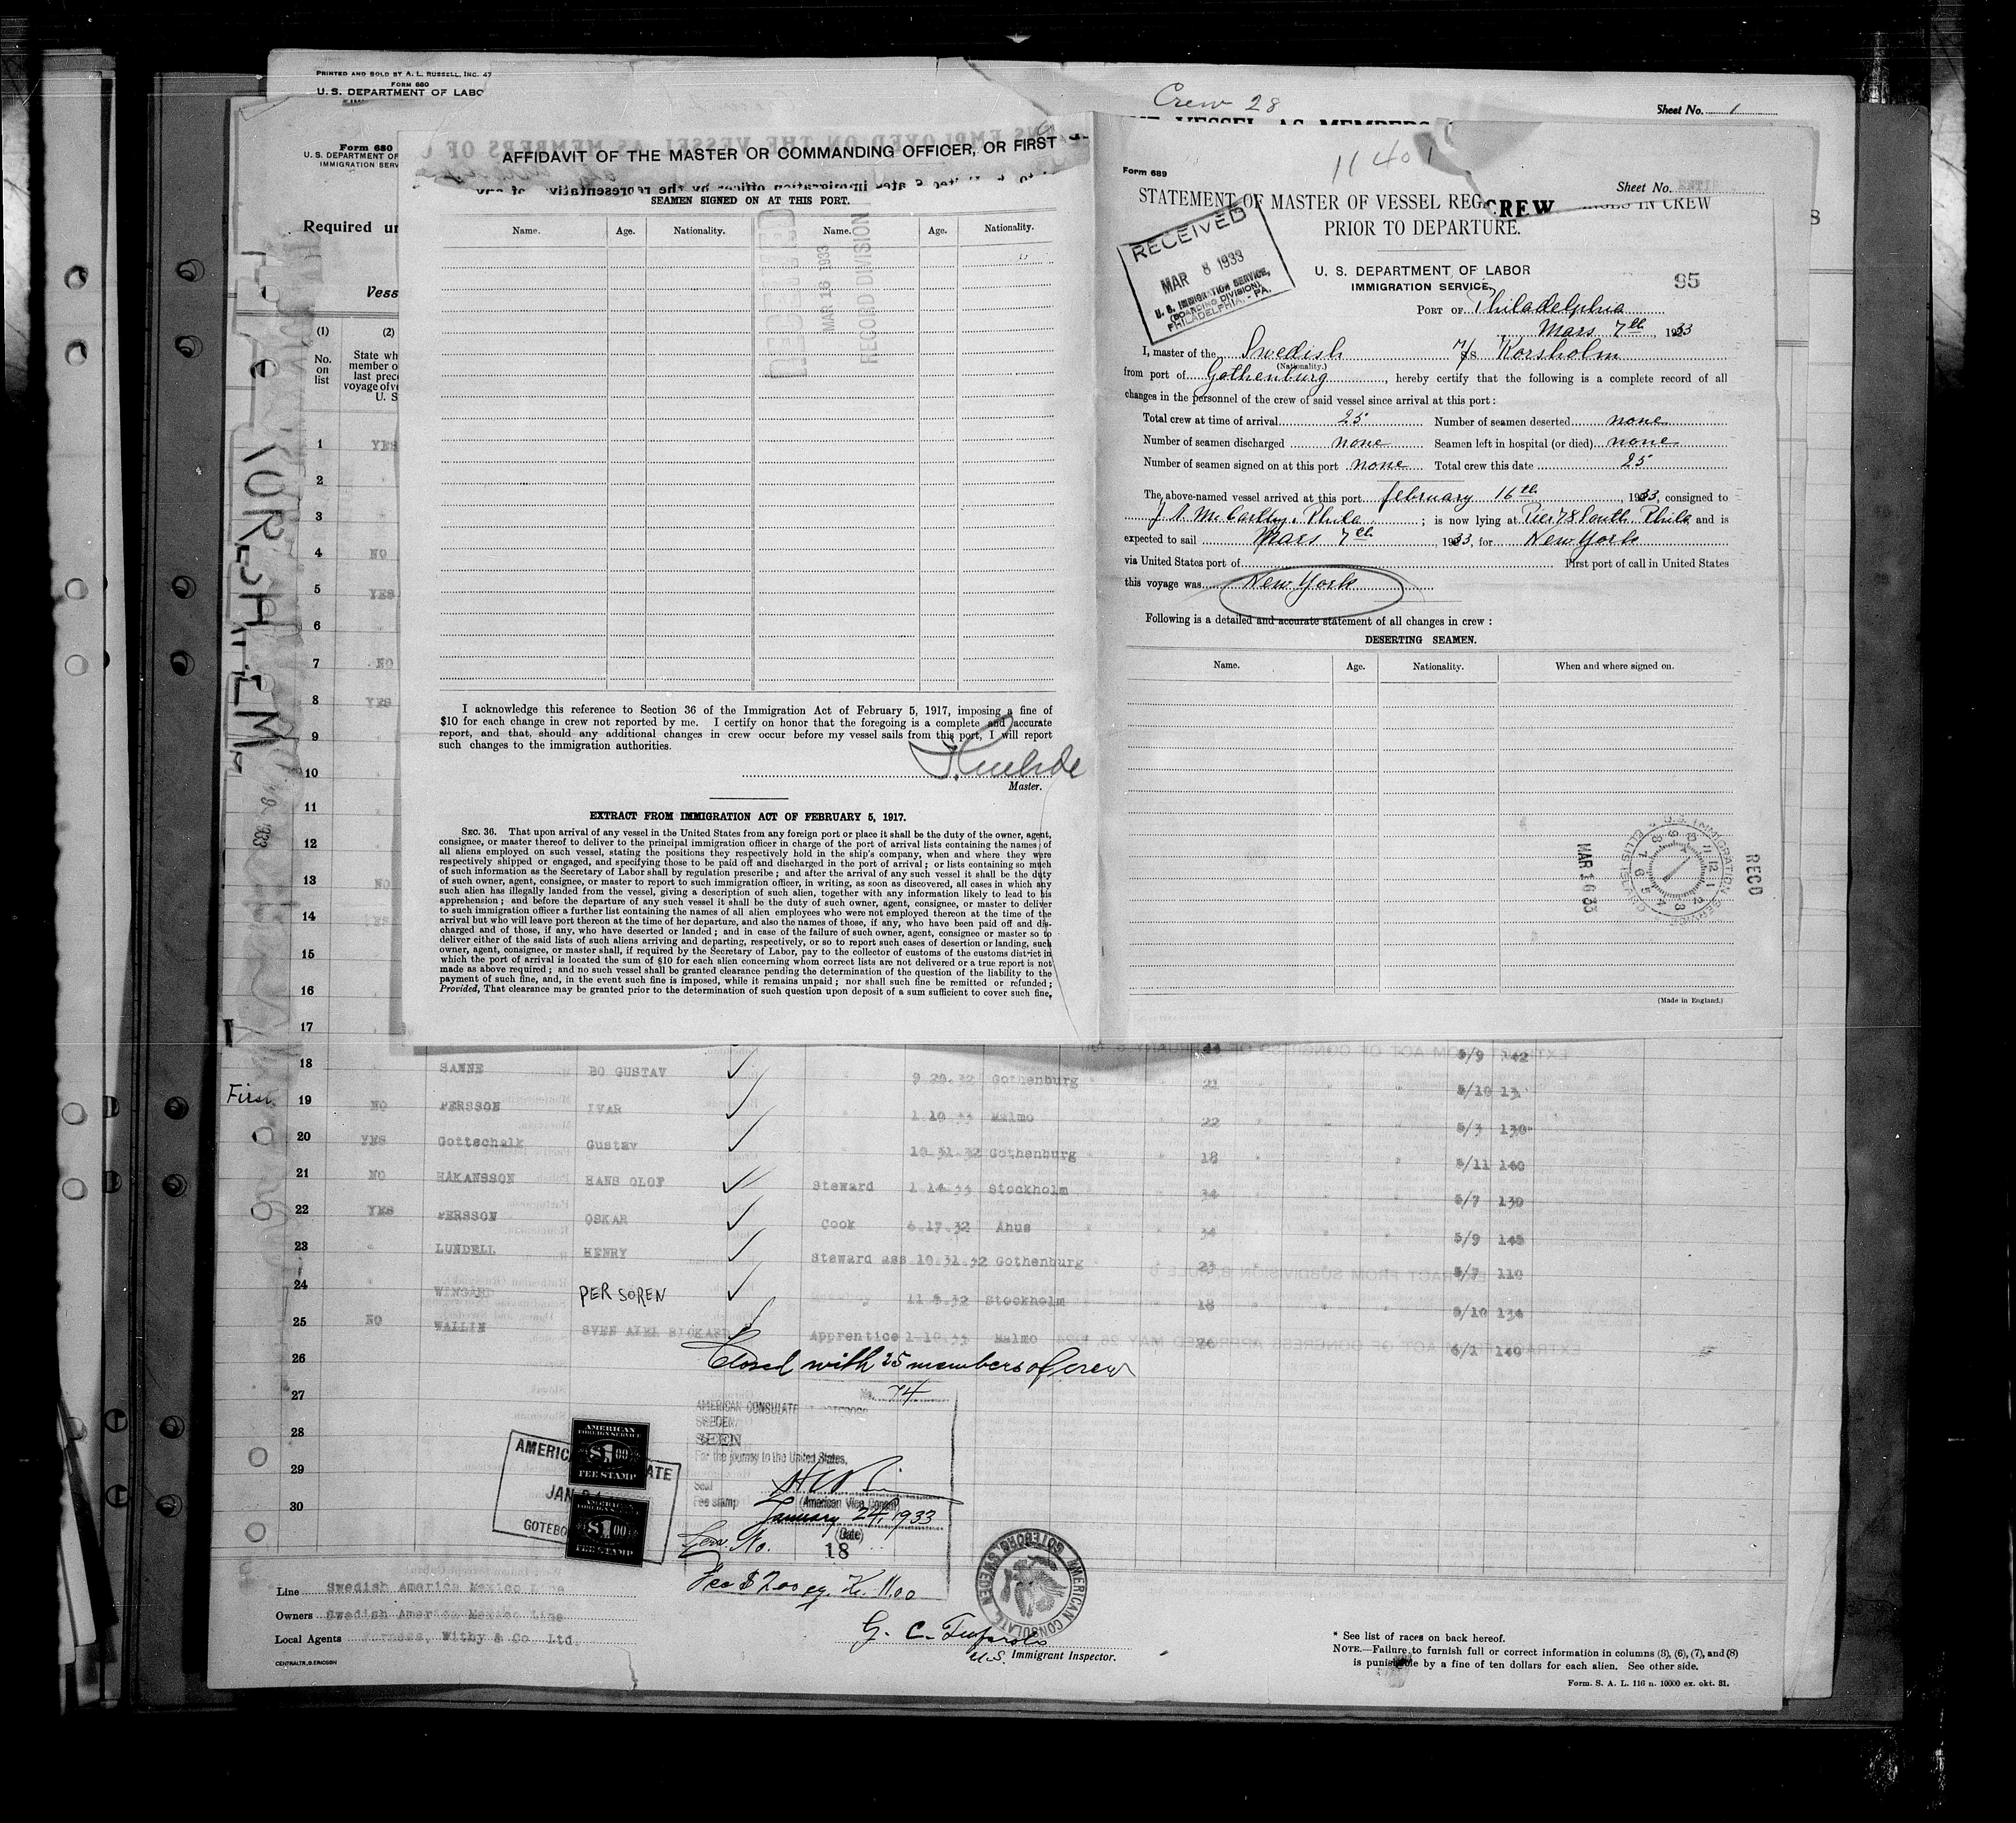 PRINTED AND SOLD BY A. L. RUSSELL, INC. 47
FORM 680
U. S. DEPARTMENT OF LABO
Crew 28
Sheet No. 1
Form 680
U. S. DEPARTMENT OF
IMMIGRATION SERV
Required un
Vess
(1) (2)
No. on list
State wh
member o
last prece
voyage of v
U. S
1 YES
2
3
4 NO
5 YES
6
7 NO
8 YES
9
10
11
12
13 NO
14 YES
15
16
17
AFFIDAVIT OF THE MASTER OR COMMANDING OFFICER, OR FIRST
SEAMEN SIGNED ON AT THIS PORT.
Name. Age. Nationality. Name. Age. Nationality.
MAR 16 1933
RECORD DIVISION
I acknowledge this reference to Section 36 of the Immigration Act of February 5, 1917, imposing a fine of
$10 for each change in crew not reported by me. I certify on honor that the foregoing is a complete and accurate
report, and that, should any additional changes in crew occur before my vessel sails from this port, I will report
such changes to the immigration authorities.
Master.
EXTRACT FROM IMMIGRATION ACT OF FEBRUARY 5, 1917.
SEC. 36. That upon arrival of any vessel in the United States from any foreign port or place it shall be the duty of the owner, agent,
consignee, or master thereof to deliver to the principal immigration officer in charge of the port of arrival lists containing the names of
all aliens employed on such vessel, stating the positions they respectively hold in the ship's company, when and where they were
respectively shipped or engaged, and specifying those to be paid off and discharged in the port of arrival; or lists containing so much
of such information as the Secretary of Labor shall by regulation prescribe; and after the arrival of any such vessel it shall be the duty
of such owner, agent, consignee, or master to report to such immigration officer, in writing, as soon as discovered, all cases in which any
such alien has illegally landed from the vessel, giving a description of such alien, together with any information likely to lead to his
apprehension; and before the departure of any such vessel it shall be the duty of such owner, agent, consignee, or master to deliver
to such immigration officer a further list containing the names of all alien employees who were not employed thereon at the time of the
arrival but who will leave port thereon at the time of her departure, and also the names of those, if any, who have been paid off and dis-
charged and of those, if any, who have deserted or landed; and in case of the failure of such owner, agent, consignee or master so to
deliver either of the said lists of such aliens arriving and departing, respectively, or so to report such cases of desertion or landing, such
owner, agent, consignee, or master shall, if required by the Secretary of Labor, pay to the collector of customs of the customs district in
which the port of arrival is located the sum of $10 for each alien concerning whom correct lists are not delivered or a true report is not
made as above required; and no such vessel shall be granted clearance pending the determination of the question of the liability to the
payment of such fine, and, in the event such fine is imposed, while it remains unpaid; nor shall such fine be remitted or refunded;
Provided, That clearance may be granted prior to the determination of such question upon deposit of a sum sufficient to cover such fine,
11401
Form 689
Sheet No.
STATEMENT OF MASTER OF VESSEL REG CREW NGES IN CREW
PRIOR TO DEPARTURE.
RECEIVED
MAR 8 1933
U. S. IMMIGRATION SERVICE,
(BOARDING DIVISION),
PHILADELPHIA, - PA.
U. S. DEPARTMENT OF LABOR
IMMIGRATION SERVICE,
95
PORT OF Philadelphia
Mars 7th, 1933
I, master of the Swedish M/S Korsholm
(Nationality.)
from port of Gothenburg, hereby certify that the following is a complete record of all
changes in the personnel of the crew of said vessel since arrival at this port:
Total crew at time of arrival 25 Number of seamen deserted none
Number of seamen discharged none Seamen left in hospital (or died) none
Number of seamen signed on at this port none Total crew this date 25
The above-named vessel arrived at this port february 16th, 1933, consigned to
J. A. Mc Carthy, Phila; is now lying at Pier 78 South Phila and is
expected to sail Mars 7th, 1933, for New York
via United States port of First port of call in United States
this voyage was New York
Following is a detailed and accurate statement of all changes in crew:
DESERTING SEAMEN.
Name. Age. Nationality. When and where signed on.
MAR 16 33
U.S. IMMIGRATION SERVICE
ELLIS IS
RECD
(Made in England.)
44 5/9 142
18 SANNE BO GUSTAV 9 20.32 Gothenburg 21 5/10
First 19 NO PERSSON IVAR 1 10 33 Malmo 22 5/3 130
20 YES Gottschalk Gustav 10.31.32 Gothenburg 18 5/11 160
21 NO HÅKANSSON HANS OLOF Steward 1 14.33 Stockholm 34 5/7 130
22 YES PERSSON OSKAR Cook 6.17.32 Åhus 34 5/9 145
23 LUNDELL HENRY Steward ass 10.31.32 Gothenburg 23 5/7 110
24 WINGARD PER SÖREN 11 5.32 Stockholm 18 5/10 134
25 NO WALLIN SVEN AXEL RICKARD Apprentice 1-10.33 Malmo 20 6/1 140
26 Closed with 25 members of crew
27
28
29
30
No. 74
AMERICAN CONSULATE
SWEDEN
SEEN
For the journey to the United States.
Seal
Fee stamp
(American Vice Consul)
January 24, 1933
(Date)
Serv. No. 18
Fee $2.00 eq. Kr. 11.00
AMERIC ATE
JAN
GOTEBO
AMERICAN
FOREIGN SERVICE
$1.00
FEE STAMP
AMERICAN
FOREIGN SERVICE
$1.00
FEE STAMP
AMERICAN CONSULATE
GOTEBORG, SWEDEN
Line Swedish America Mexico Line
Owners Swedish America Mexico Line
Local Agents Furness, Withy & Co Ltd.
CENTRALTR. G. ERICSON
U.S. Immigrant Inspector.
* See list of races on back hereof.
NOTE.—Failure to furnish full or correct information in columns (3), (6), (7), and (8)
is punishable by a fine of ten dollars for each alien. See other side.
Form. S. A. L. 116 n. 10000 ex. okt. 31.